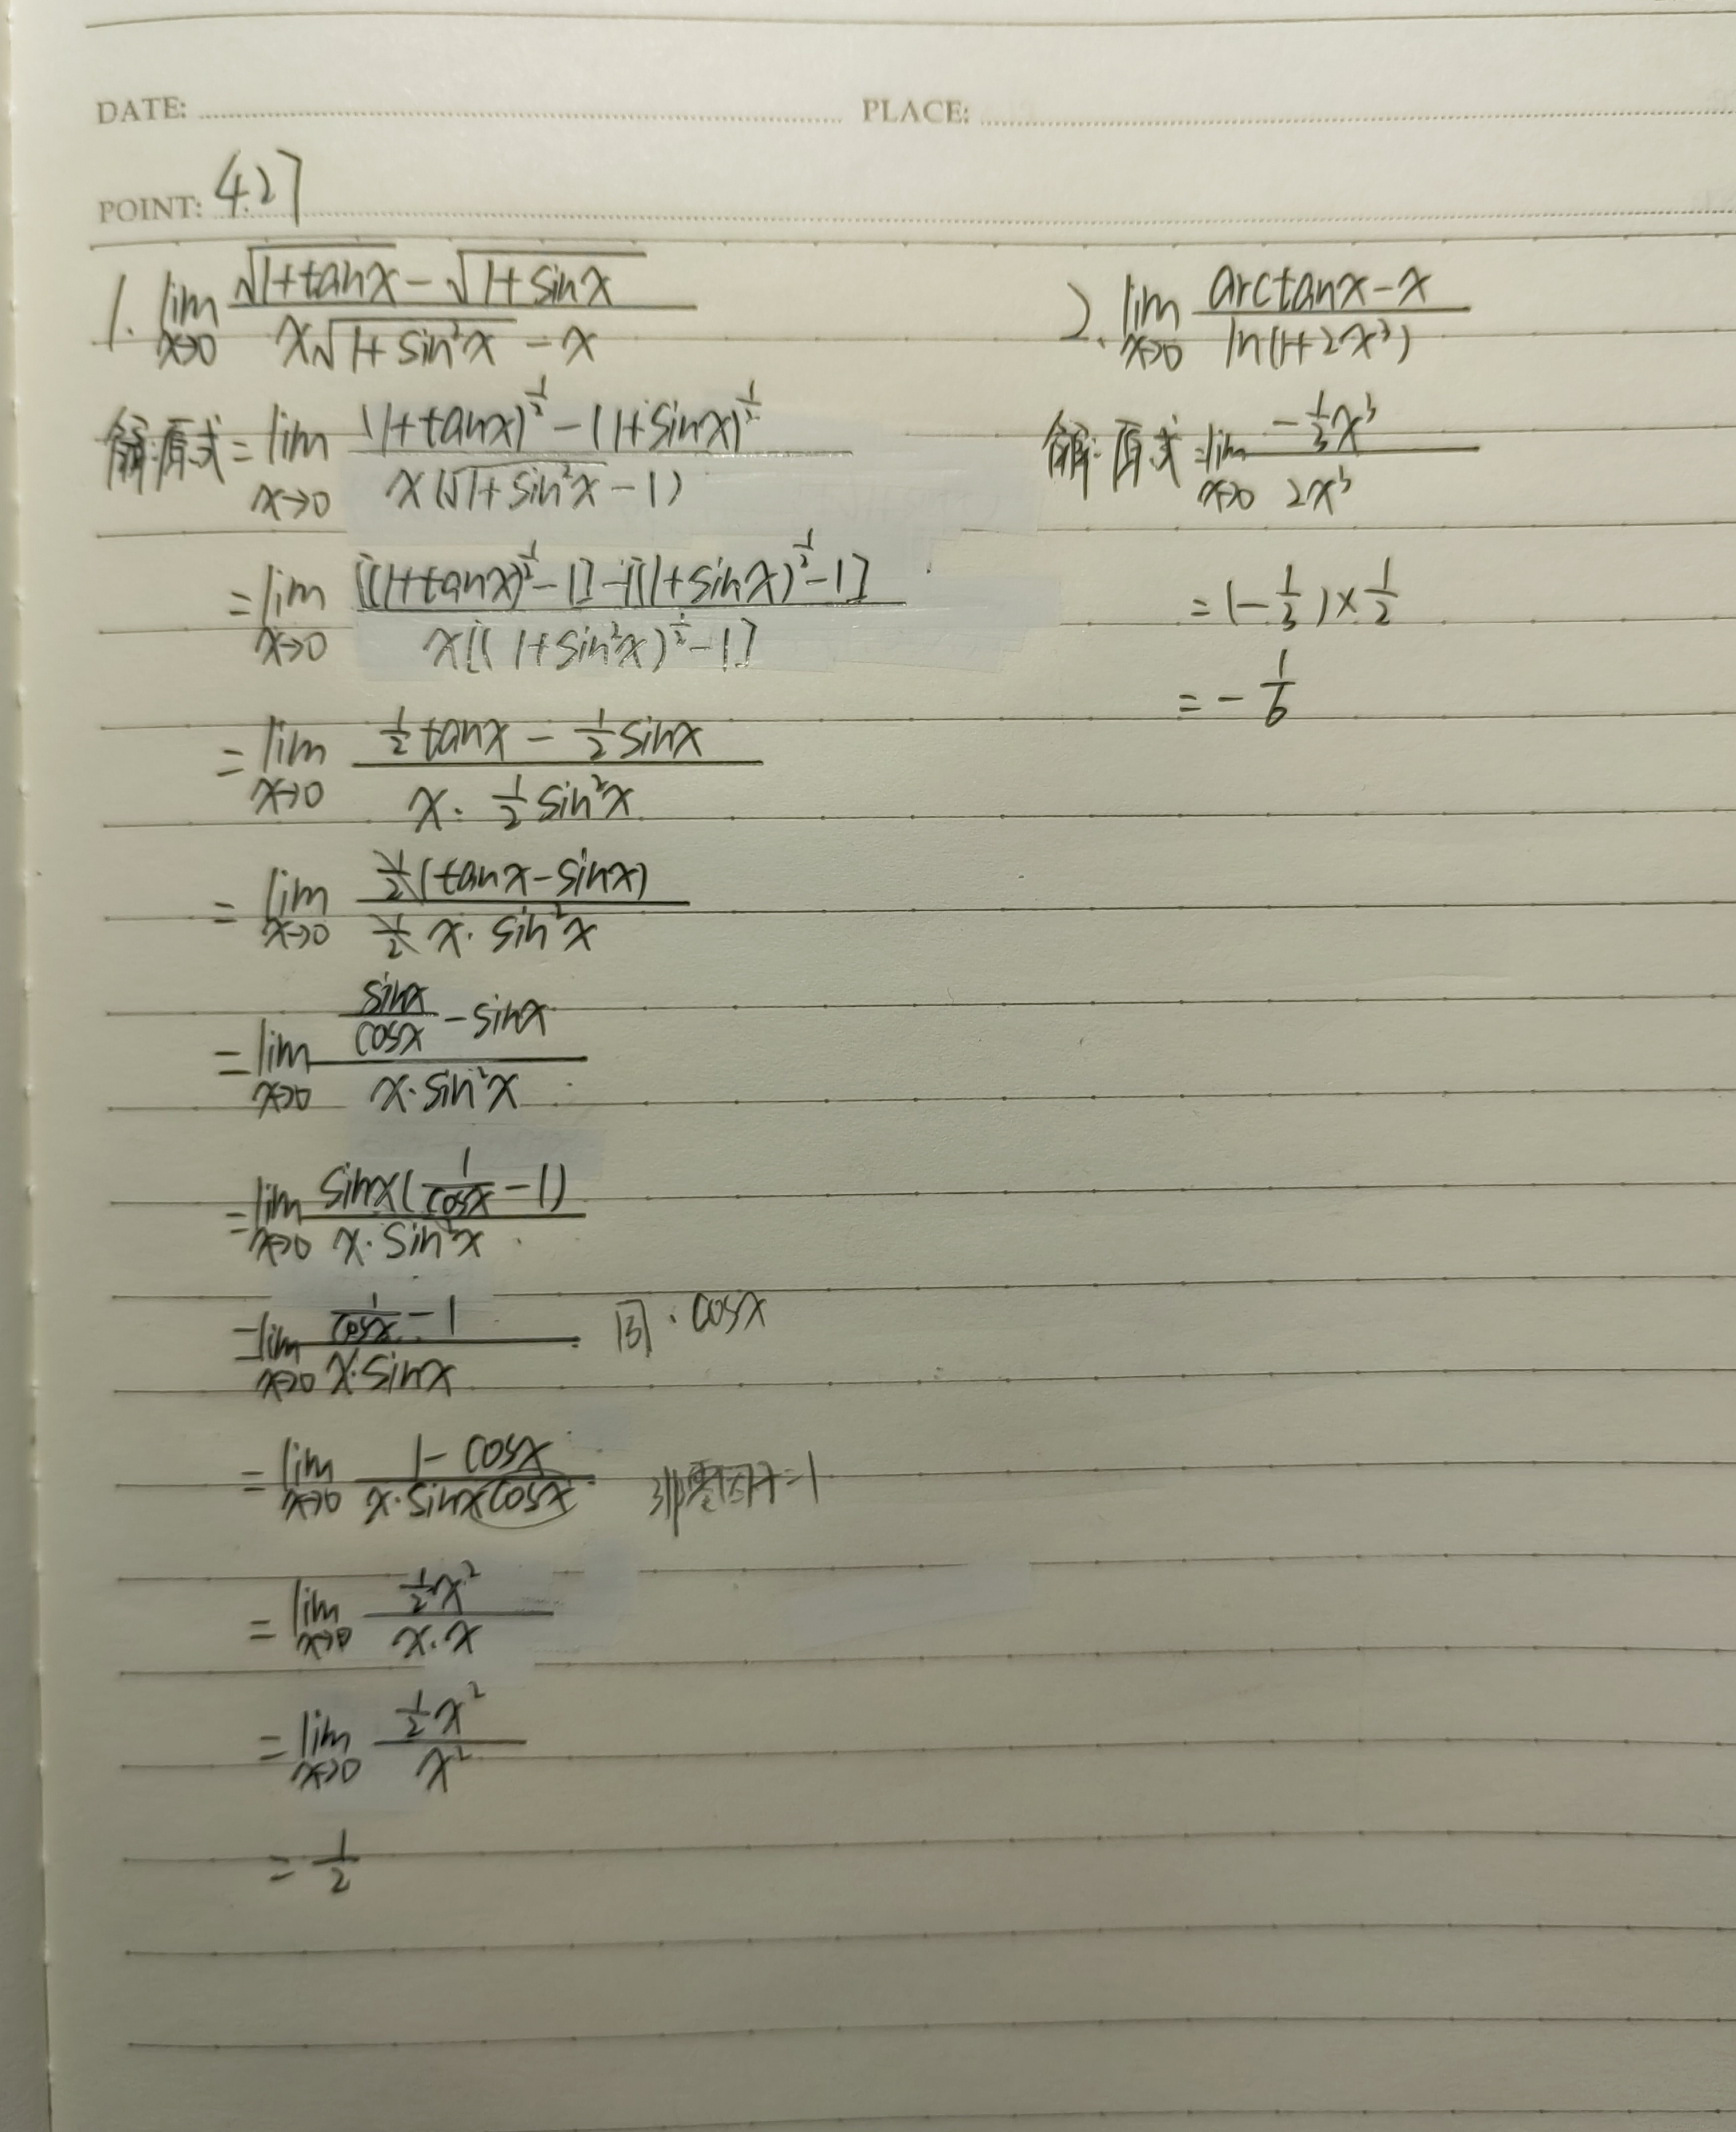 DATE: PLACE:
POINT: 4.27
1. lim x→0 (√(1+tanx) - √(1+sinx)) / (x√(1+sin²x) - x)
解:原式 = lim x→0 ((1+tanx)^(1/2) - (1+sinx)^(1/2)) / (x(√(1+sin²x) - 1))
= lim x→0 ([(1+tanx)^(1/2) - 1] - [(1+sinx)^(1/2) - 1]) / (x[(1+sin²x)^(1/2) - 1])
= lim x→0 (1/2 tanx - 1/2 sinx) / (x · 1/2 sin²x)
= lim x→0 (1/2 (tanx - sinx)) / (1/2 x · sin²x)
= lim x→0 (sinx/cosx - sinx) / (x · sin²x)
= lim x→0 (sinx(1/cosx - 1)) / (x · sin²x)
= lim x→0 (1/cosx - 1) / (x · sinx) 同 · cosx
= lim x→0 (1 - cosx) / (x · sinx cosx) 非零因子=1
= lim x→0 (1/2 x²) / (x · x)
= lim x→0 (1/2 x²) / x²
= 1/2
2. lim x→0 (arctanx - x) / ln(1+2x³)
解:原式 = lim x→0 (-1/3 x³) / 2x³
= (-1/3) × 1/2
= - 1/6